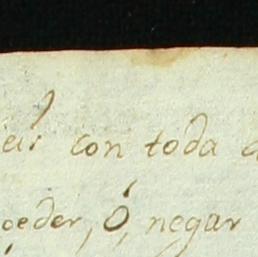 con toda
oeder, ó, negar